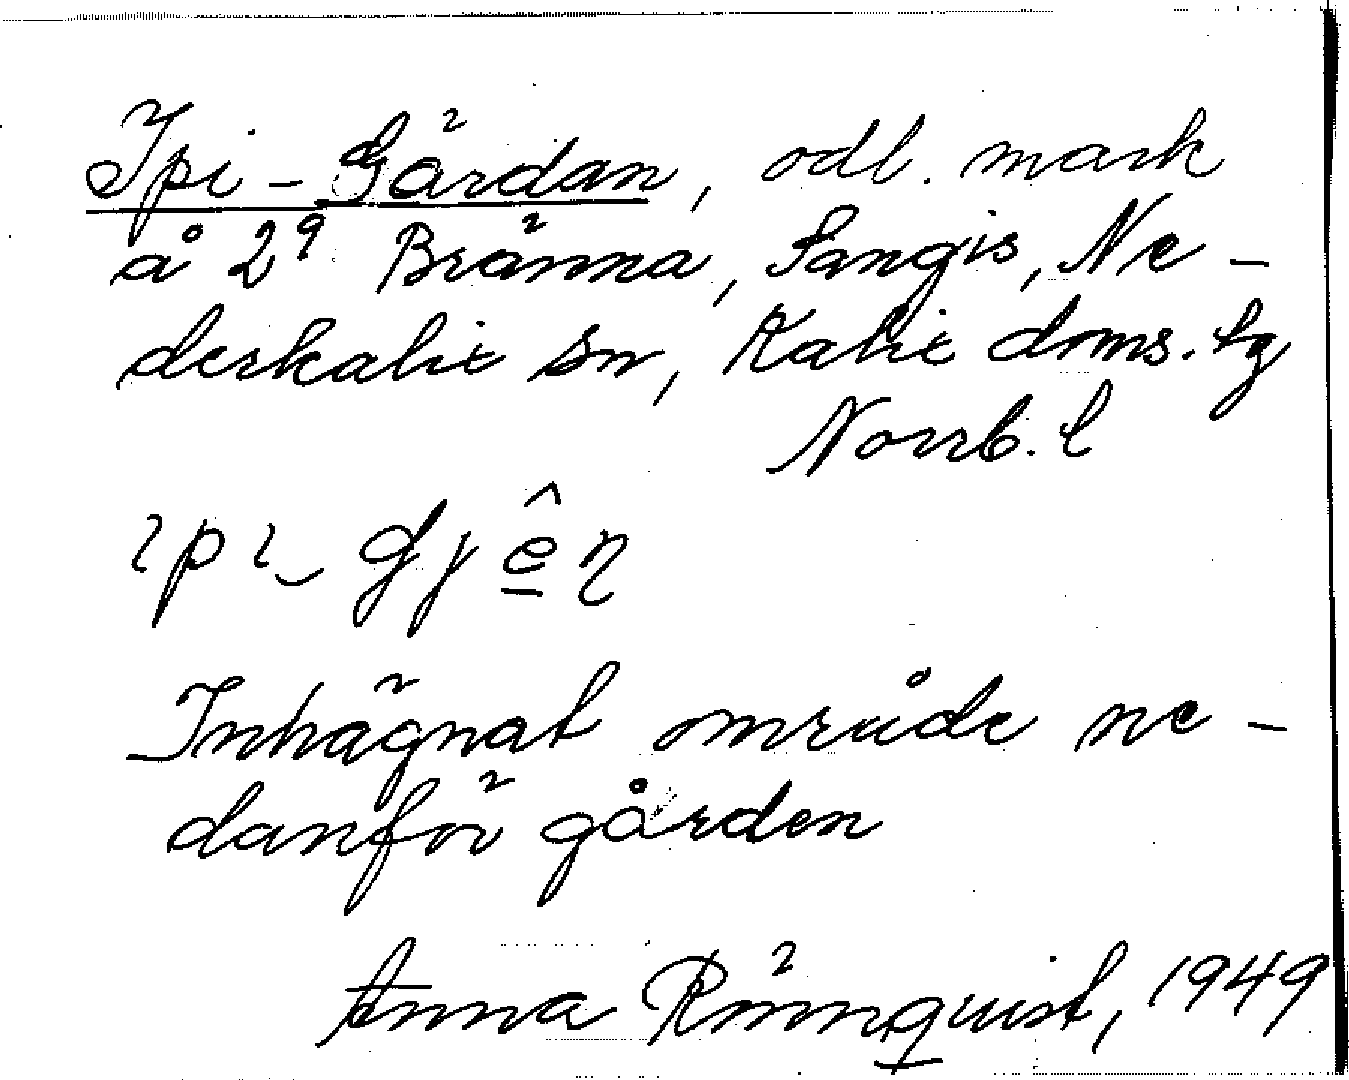 Ipi-Gärdan, odl. mark
å 2⁹ Bränna, Sangis, Ne-
derkalix sn, Kalix doms. lg
Norrb. l
ɩpɩ‿gjên
Inhägnat område ne-
danför gården
Anna Rönnquist, 1949